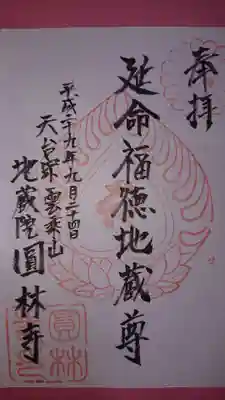 奉拝
延命福徳地蔵尊
平成二十九年九月二十四日
天台宗雲乗山
地蔵院圓林寺